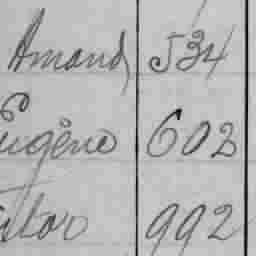 Amand 534
Eugène 602
992